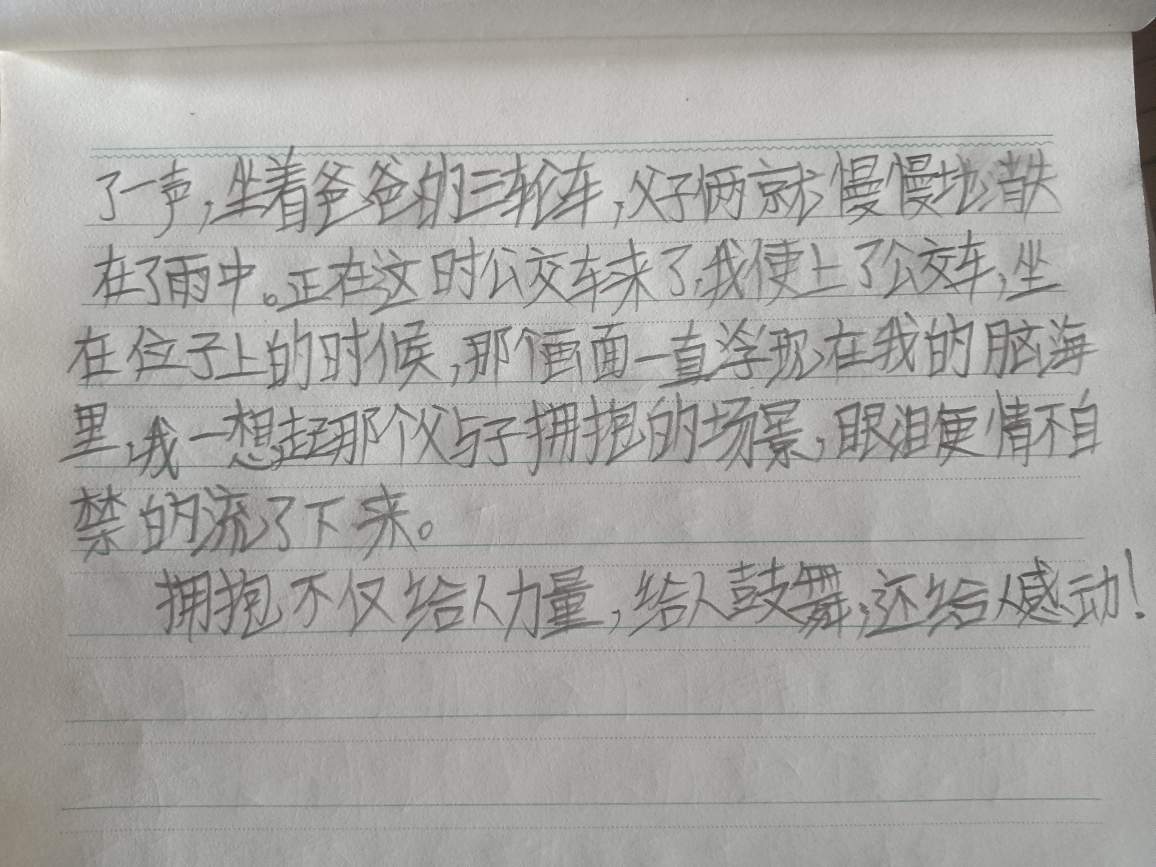 了一声,坐着爸爸的三轮车,父子俩就慢慢地消失
在了雨中。正在这时公交车来了,我便上了公交车,坐
在位子上的时候,那个画面一直浮现在我的脑海
里,我一想起那个父与子拥抱的场景,眼泪便情不自
禁的流了下来。
拥抱不仅给人力量,给人鼓舞,还给人感动!